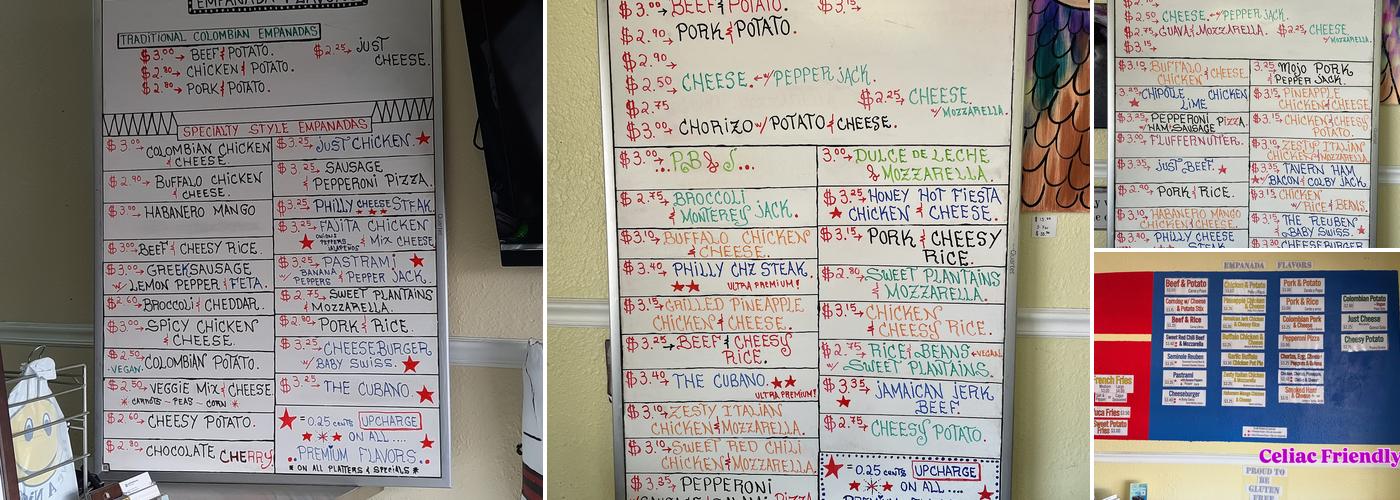 EMPANADA FLAVOR
TRADITIONAL COLOMBIAN EMPANADAS
$3.00→ BEEF & POTATO.
$2.80→ CHICKEN & POTATO.
$2.80→ PORK & POTATO.
$2.25→ JUST
CHEESE.
SPECIALTY STYLE EMPANADAS
$3.00→ COLOMBIAN CHICKEN
& CHEESE.
$2.90→ BUFFALO CHICKEN
& CHEESE.
$3.00→ HABANERO MANGO
$3.00→ BEEF & CHEESY RICE.
$3.00→ GREEK SAUSAGE
W/ LEMON PEPPER & FETA.
$2.60→ BROCCOLI & CHEDDAR.
$3.00→ SPICY CHICKEN
& CHEESE.
$2.50→ COLOMBIAN POTATO.
VEGAN
$2.50→ VEGGIE MIX & CHEESE
* CARROTS - PEAS - CORN *
$2.60→ CHEESY POTATO.
$2.80→ CHOCOLATE CHERRY
$3.25→ JUST CHICKEN.
$3.25→ SAUSAGE
& PEPPERONI PIZZA.
$3.25→ PHILLY CHEESE STEAK.
$3.25→ FAJITA CHICKEN
ONIONS PEPPERS JALAPEÑOS & MIX CHEESE
$3.25→ PASTRAMI
W/ BANANA PEPPERS & PEPPER JACK.
$2.75→ SWEET PLANTAINS
& MOZZARELLA.
$2.90→ PORK & RICE.
$3.25→ CHEESEBURGER
W/ BABY SWISS.
$3.25→ THE CUBANO.
★ = 0.25 CENTS UPCHARGE
ON ALL....
..PREMIUM FLAVORS..
* ON ALL PLATTERS & SPECIALS *
$3.00→ BEEF & POTATO.
$3.15→
$2.90→ PORK & POTATO.
$2.90→
$2.50→ CHEESE. ← W/ PEPPER JACK.
$2.75
$2.25→ CHEESE
W/ MOZZARELLA.
$3.00→ CHORIZO W/ POTATO & CHEESE.
$3.00→ ...PB & J...
$2.75→ BROCCOLI
& MONTEREY JACK.
$3.10→ BUFFALO CHICKEN
& CHEESE.
$3.40→ PHILLY CHZ STEAK.
ULTRA PREMIUM!
$3.15→ GRILLED PINEAPPLE
CHICKEN & CHEESE.
$3.25→ BEEF & CHEESY
RICE.
$3.40→ THE CUBANO.
ULTRA PREMIUM!
$3.10→ ZESTY ITALIAN
CHICKEN & MOZZARELLA.
$3.10→ SWEET RED CHILI
CHICKEN & MOZZARELLA.
$3.35→ PEPPERONI
3.00→ DULCE DE LECHE
& MOZZARELLA.
$3.25→ HONEY HOT FIESTA
CHICKEN & CHEESE.
$3.15→ PORK & CHEESY
RICE.
$2.80→ SWEET PLANTAINS
& MOZZARELLA.
$3.15→ CHICKEN
& CHEESY RICE.
$2.75→ RICE & BEANS ← VEGAN
W/ SWEET PLANTAINS.
$3.35→ JAMAICAN JERK
BEEF.
$2.75→ CHEESY POTATO.
★ = 0.25 CENTS UPCHARGE
ON ALL....
$2.50→ CHEESE. ← W/ PEPPER JACK.
$2.75→ GUAVA & MOZZARELLA.
$2.25→ CHEESE
W/ MOZZARELLA.
$3.15→
$3.10→ BUFFALO
CHICKEN & CHEESE.
3.25→ CHIPOTLE CHICKEN
LIME
$3.25→ PEPPERONI PIZZA
W/ HAM & SAUSAGE
$3.00→ FLUFFERNUTTER.
$3.35→ JUST BEEF.
$2.90→ PORK & RICE.
$3.10→ HABANERO MANGO
CHICKEN & CHEESE.
$3.40→ PHILLY CHEESE
STEAK
3.25→ MOJO PORK
& PEPPER JACK
$3.15→ PINEAPPLE
CHICKEN & CHEESE
$3.15→ CHICKEN & CHEESY
POTATO.
$3.10→ ZESTY ITALIAN
CHICKEN & MOZZARELLA
$3.35→ TAVERN HAM
BACON & COLBY JACK.
$3.15→ CHICKEN
W/ RICE & BEANS.
$3.15→ THE REUBEN
W/ BABY SWISS.
$3.30 CHEESEBURGER
EMPANADA FLAVORS
Beef & Potato
Beef & Rice
Sweet Red Chili Beef
& Mozzarella
Seminole Reuben
Pastrami
Cheeseburger
Chicken & Potato
Pork & Potato
Pork & Rice
Colombian Pork
& Cheese
Pepperoni Pizza
Colombian Potato
Just Cheese
Cheesy Potato
French Fries
Yuca Fries
Sweet Potato
Fries
Celiac Friendly
PROUD TO
BE
GLUTEN
FREE